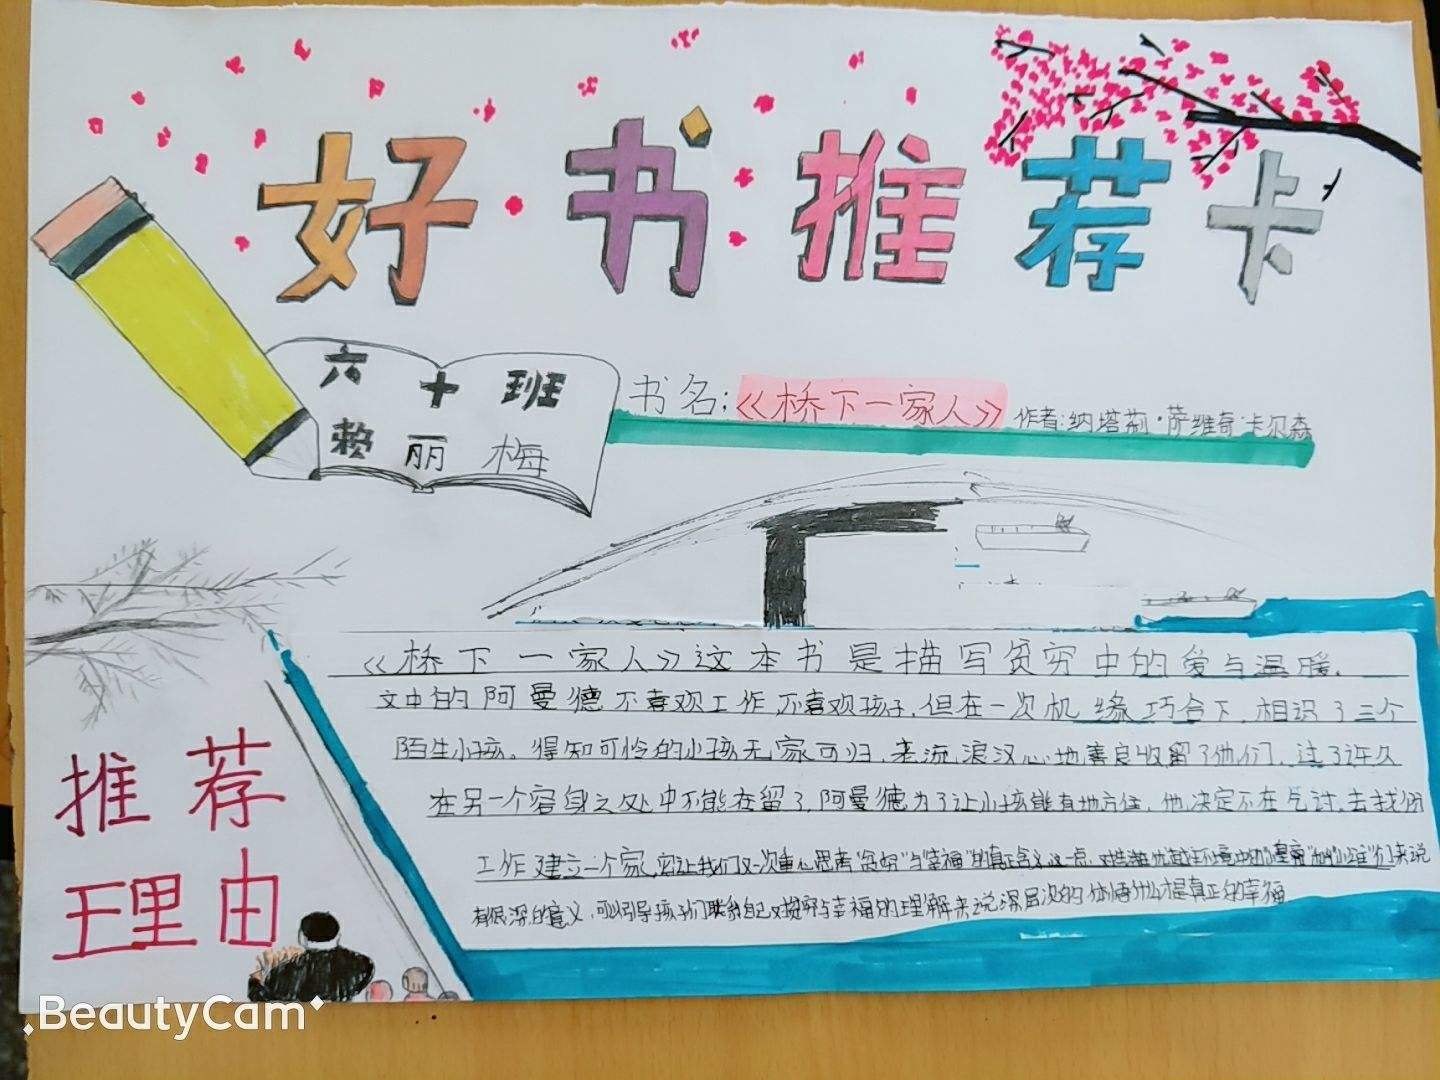 好书推荐卡
六十班
赖丽梅
书名:《桥下一家人》 作者:纳塔莉·萨维奇·卡尔森
《桥下一家人》这本书是描写贫穷中的爱与温暖.
文中的阿曼德不喜欢工作,不喜欢孩子,但在一次机缘巧合下,相识了三个
陌生小孩。得知可怜的小孩无家可归,老流浪汉心地善良收留了他们,过了许久
在另一个容身之处中不能在留了,阿曼德为了让小孩能有地方住,他决定不在乞讨,去找份
工作建立一个家,它让我们又一次重心思考"贫穷"与"幸福"的真正含义这一点,对生在优越环境中的 来说
有很深的意义,可以引导孩子们联系自己对贫穷与幸福的理解来说深层次的体悟什么才是真正的幸福
推荐
理由
BeautyCam